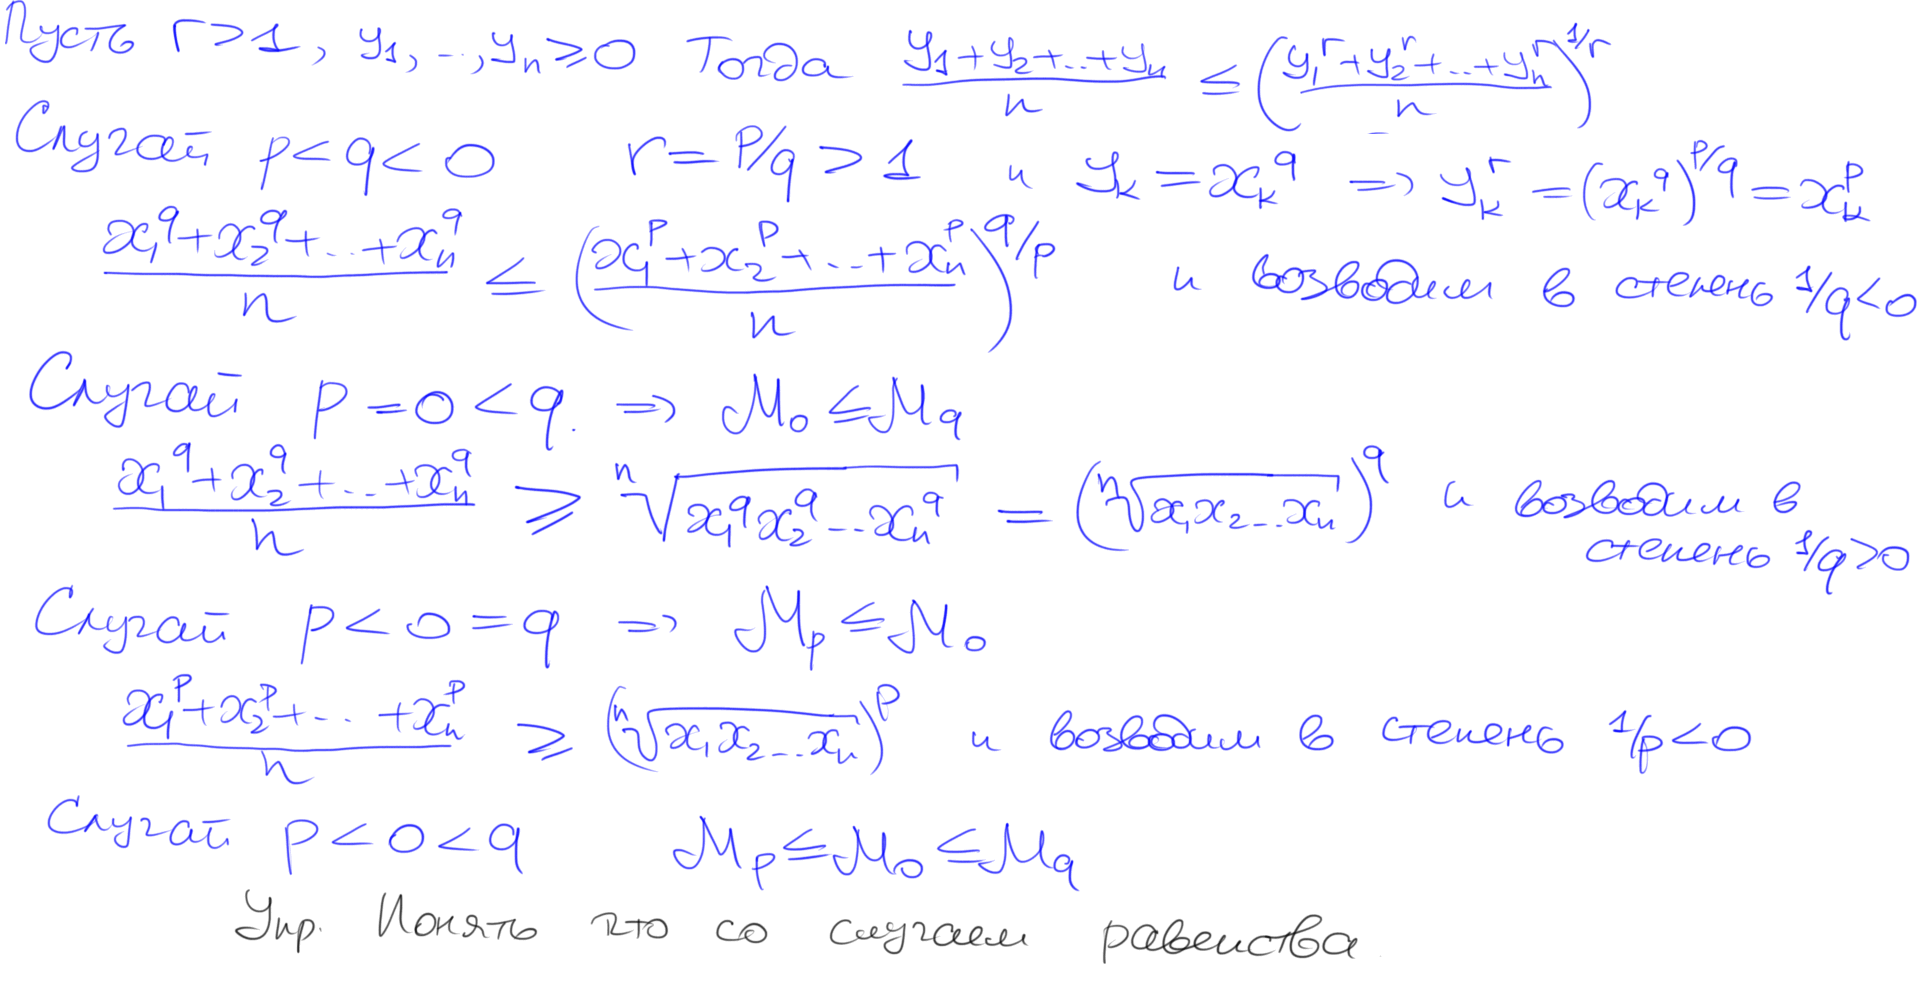 Пусть r>1, y₁, ..., yₙ ≥ 0 Тогда (y₁+y₂+...+yₙ)/n ≤ ((y₁^r+y₂^r+...+yₙ^r)/n)^(1/r)
Случай p<q<0 r=p/q>1 и y_k=x_k^q ⇒ y_k^r=(x_k^q)^(p/q)=x_k^p
(x₁^q+x₂^q+...+xₙ^q)/n ≤ ((x₁^p+x₂^p+...+xₙ^p)/n)^(q/p) и возводим в степень 1/q<0
Случай p=0<q. ⇒ M₀≤M_q
(x₁^q+x₂^q+...+xₙ^q)/n ≥ ⁿ√(x₁^q x₂^q...xₙ^q) = (ⁿ√(x₁x₂...xₙ))^q и возводим в
степень 1/q>0
Случай p<0=q ⇒ M_p≤M₀
(x₁^p+x₂^p+...+xₙ^p)/n ≥ (ⁿ√(x₁x₂...xₙ))^p и возводим в степень 1/p<0
Случай p<0<q M_p≤M₀≤M_q
Упр. Понять что со случаем равенства